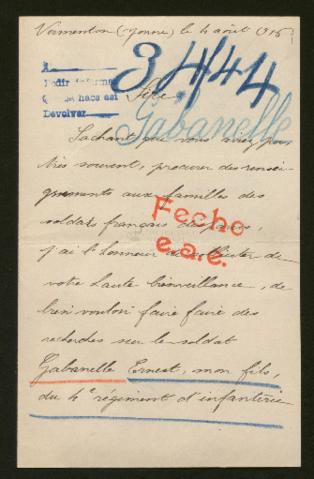 Vermenton (Yonne) le 4 août 1916
A
Pedir informes
hace así
Devolver
3444
Sire,
Gabanelle
Sachant que vous avez pu,
très souvent, procurer des rensei-
gnements aux familles des
soldats français disparus,
Fecho
e.a.e.
j'ai l'honneur de solliciter de
votre haute bienveillance, de
bien vouloir faire faire des
recherches sur le soldat
Gabanelle Ernest, mon fils,
du 4e régiment d'infanterie